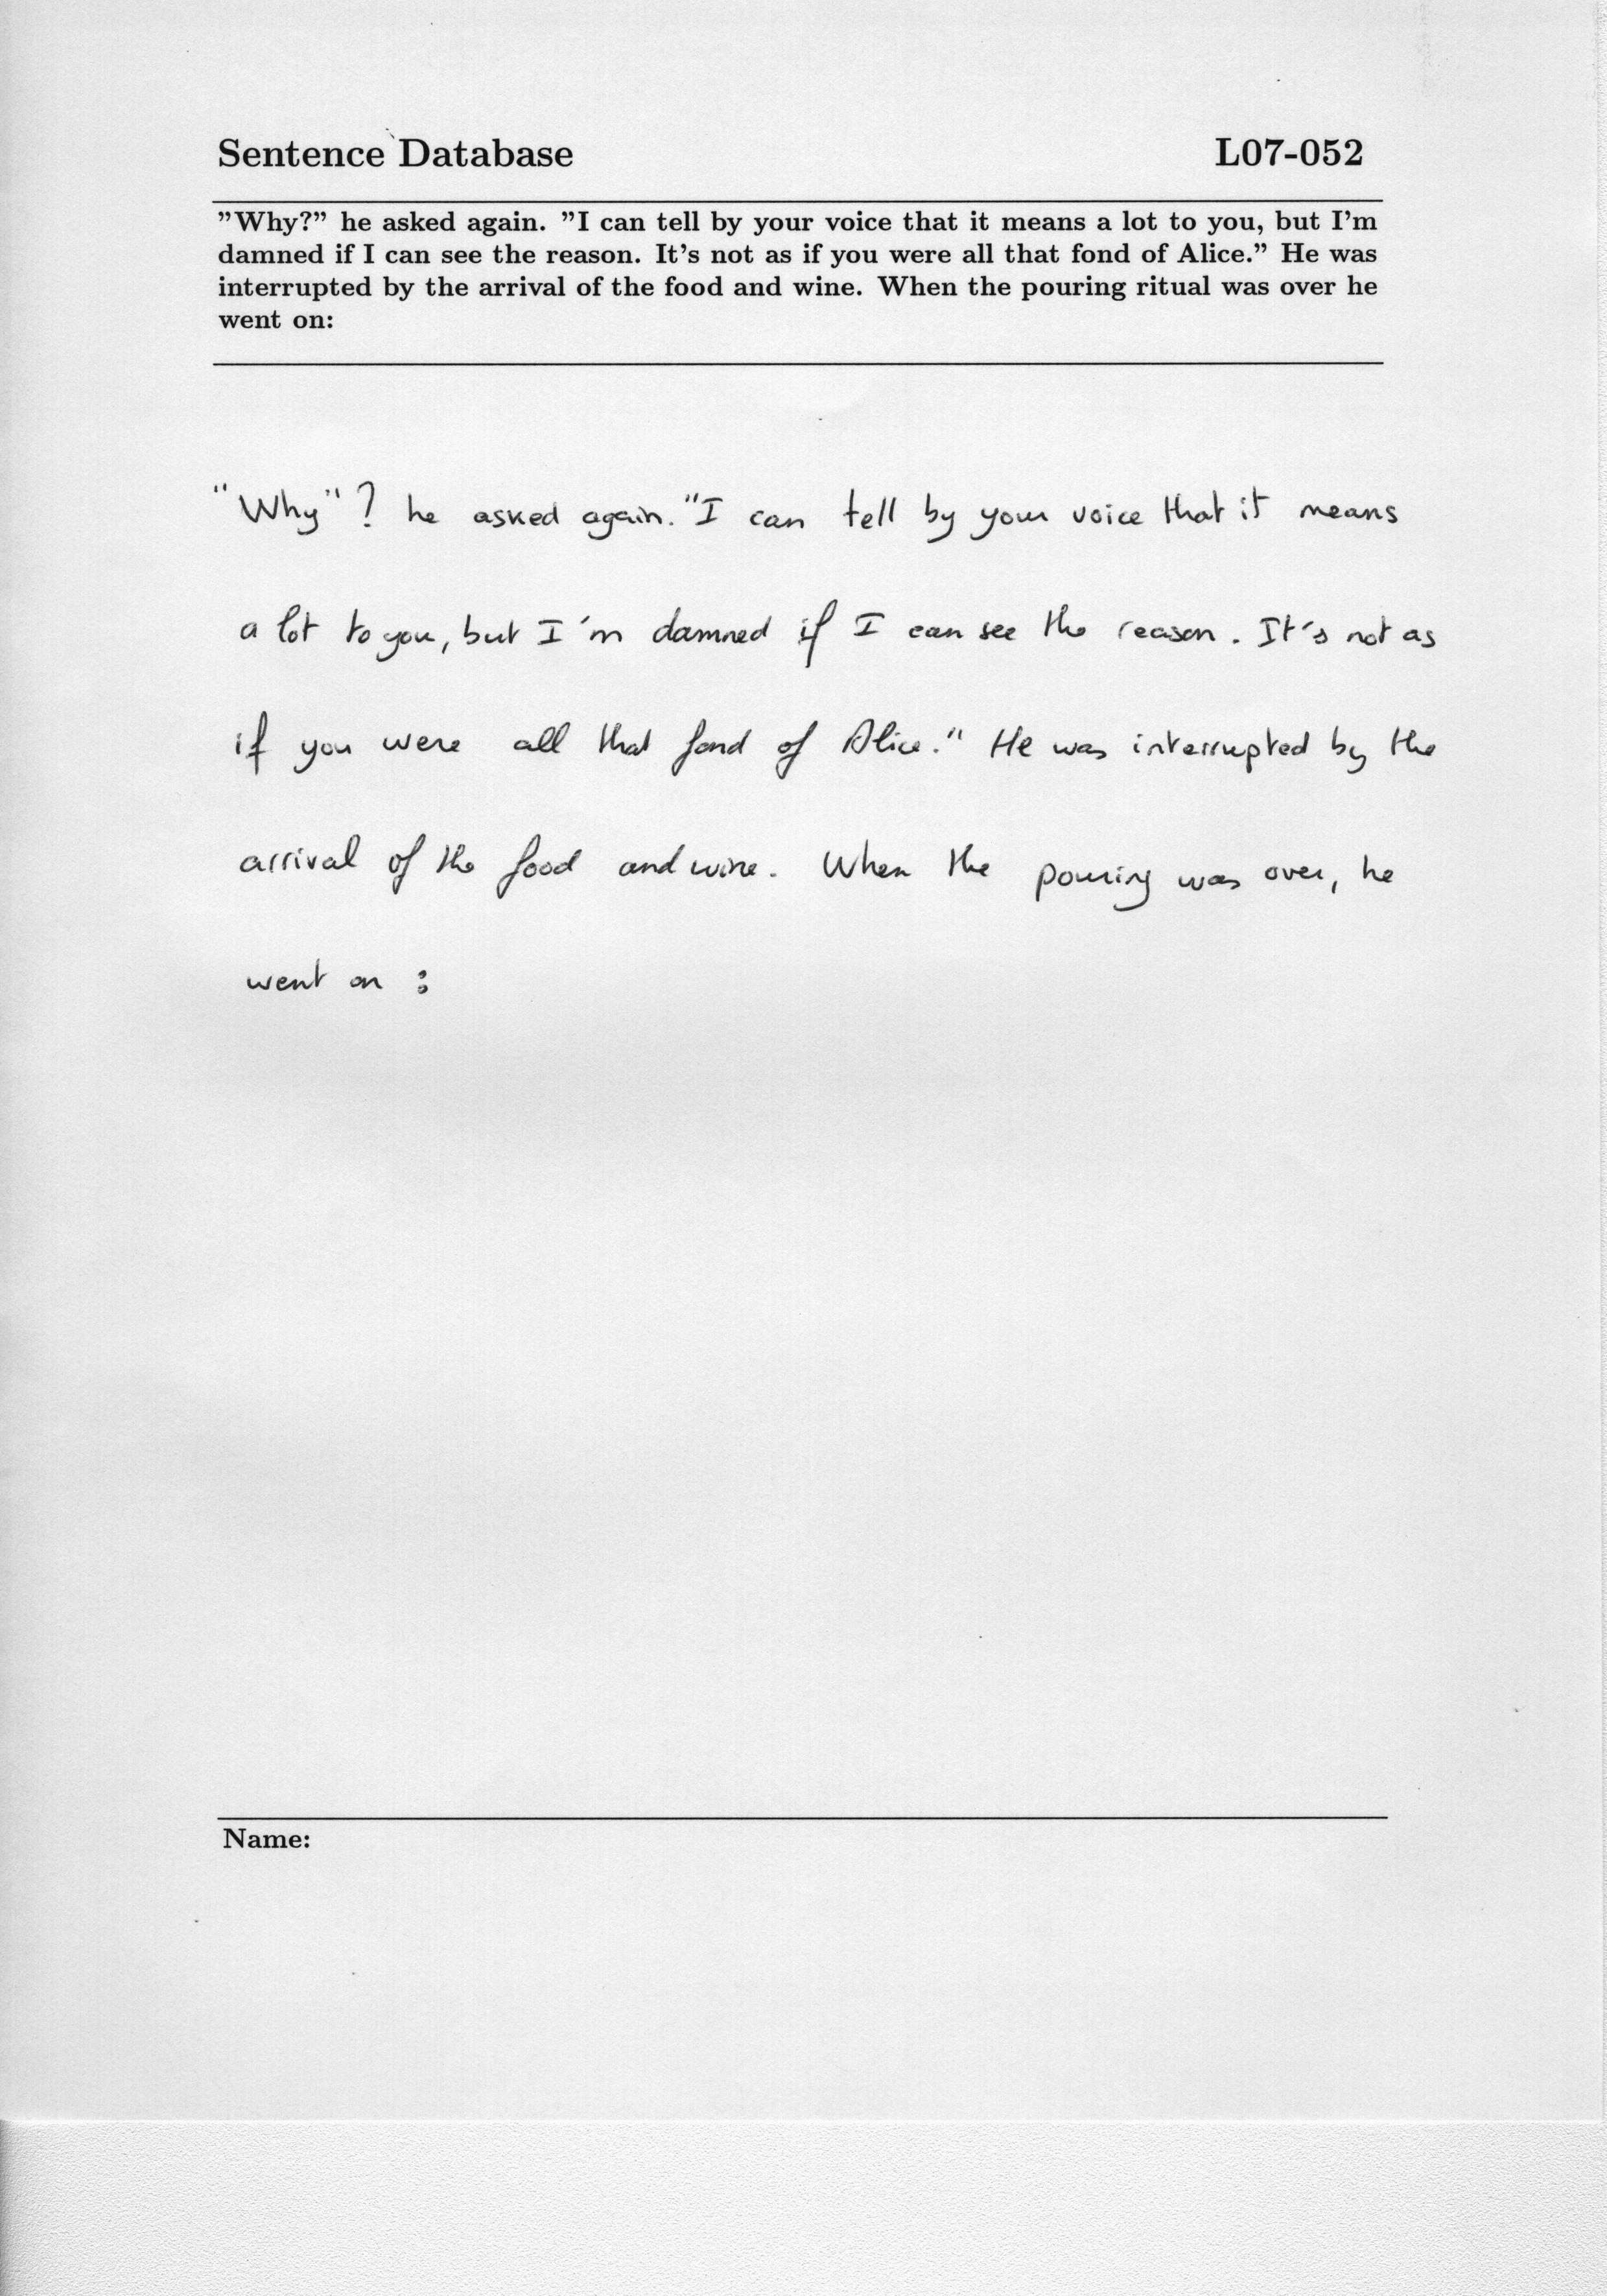 Sentence Database L07-052
"Why?" he asked again. "I can tell by your voice that it means a lot to you, but I'm
damned if I can see the reason. It's not as if you were all that fond of Alice." He was
interrupted by the arrival of the food and wine. When the pouring ritual was over he
went on:
"Why"? he asked again. "I can tell by your voice that it means
a lot to you, but I'm damned if I can see the reason. It's not as
if you were all that fond of Alice." He was interrupted by the
arrival of the food and wine. When the pouring was over, he
went on :
Name: